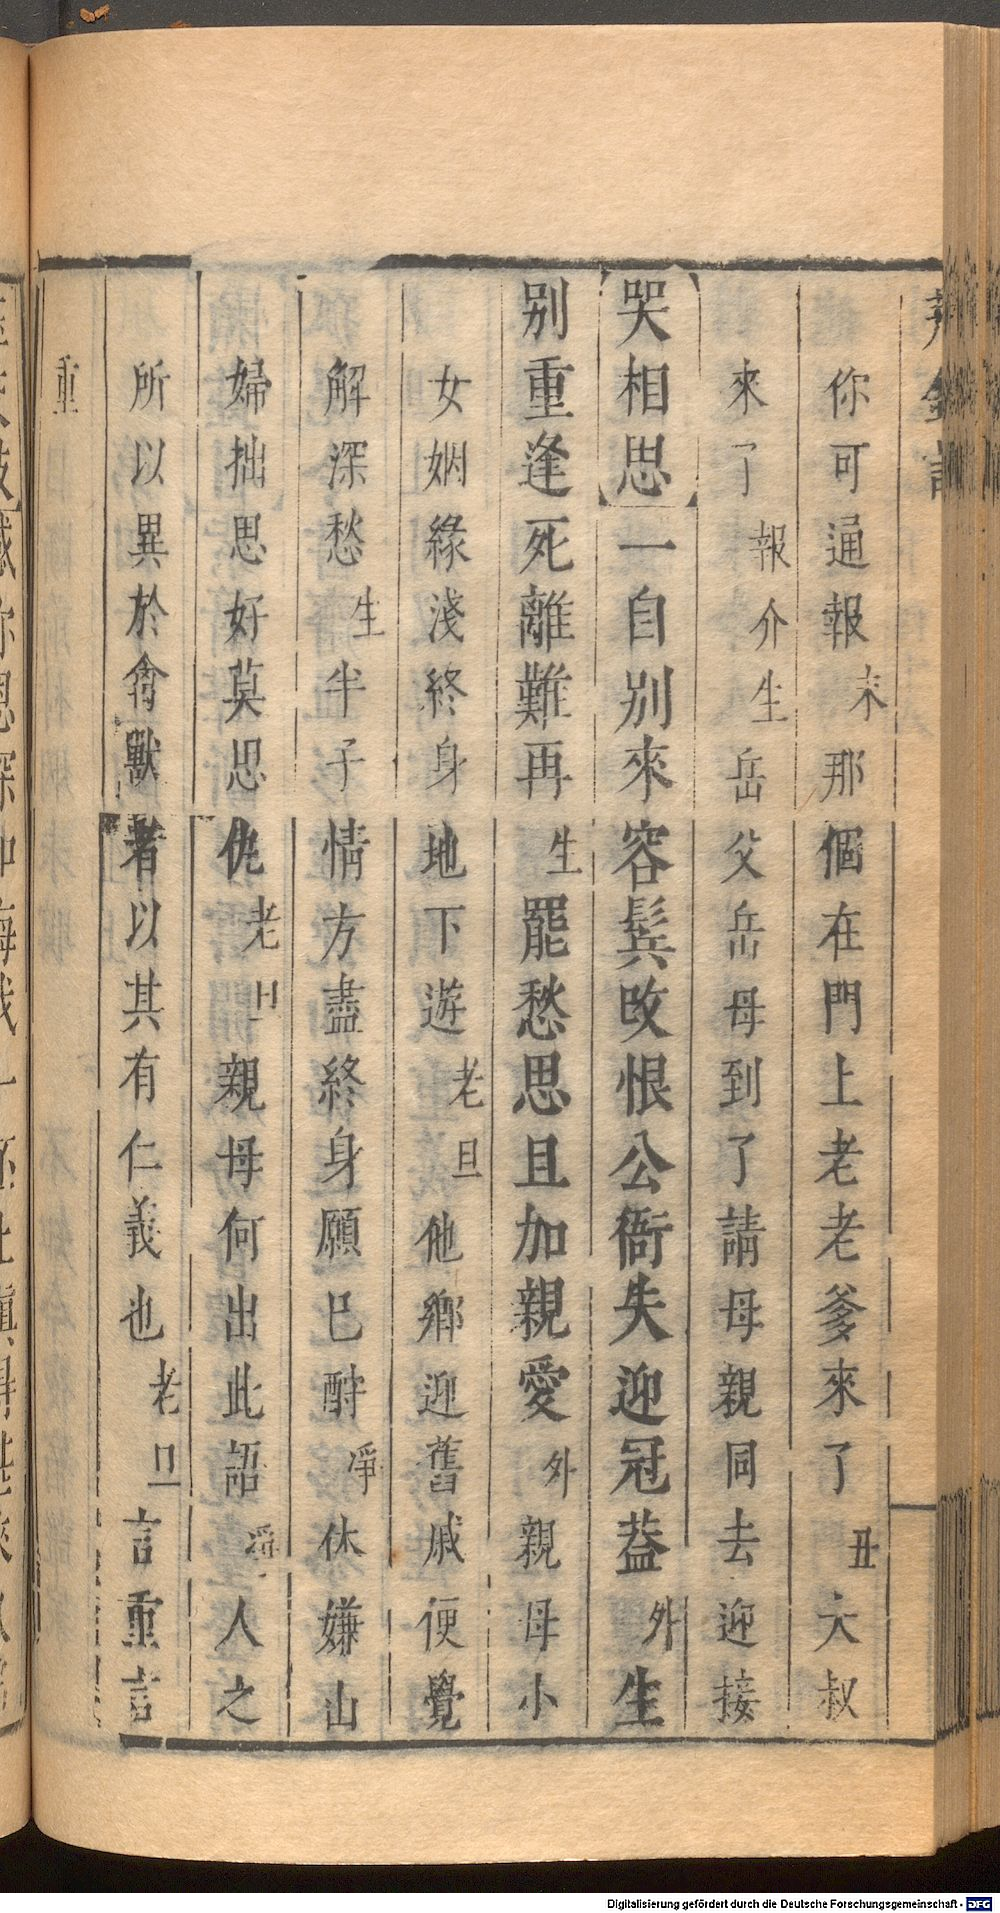 荆釵記
你可通報末那個在門上老老爹來了丑大叔
來了報介生岳父岳母到了請母親同去迎接
【哭相思】一自别來容鬂改恨公衙失迎冠葢外生
别重逢死離難再生罷愁思且加親愛外親母小
女姻緣淺終身地下遊老旦他鄉迎舊戚便覺
解深愁生半子情方盡終身願巳酧凈休嫌山
婦拙思好莫思仇老旦親母何出此語凈人之
所以異於禽獸者以其有仁義也老旦言重言
重
Digitalisierung gefördert durch die Deutsche Forschungsgemeinschaft - DFG